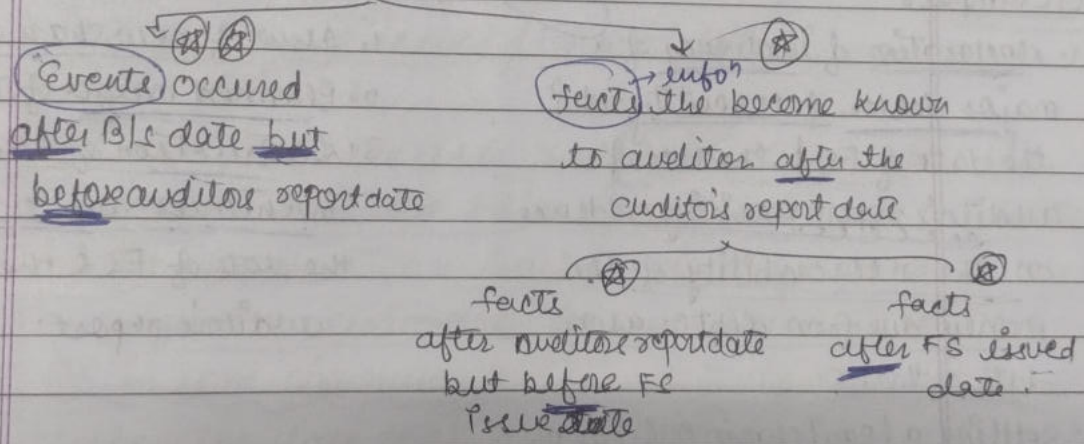 Events occured
after B/s date but
before auditors report date
facts the become known
→ infoⁿ
to auditor after the
auditor's report date
facts
after auditors report date
but before FS
issue date
facts
after FS issued
date.